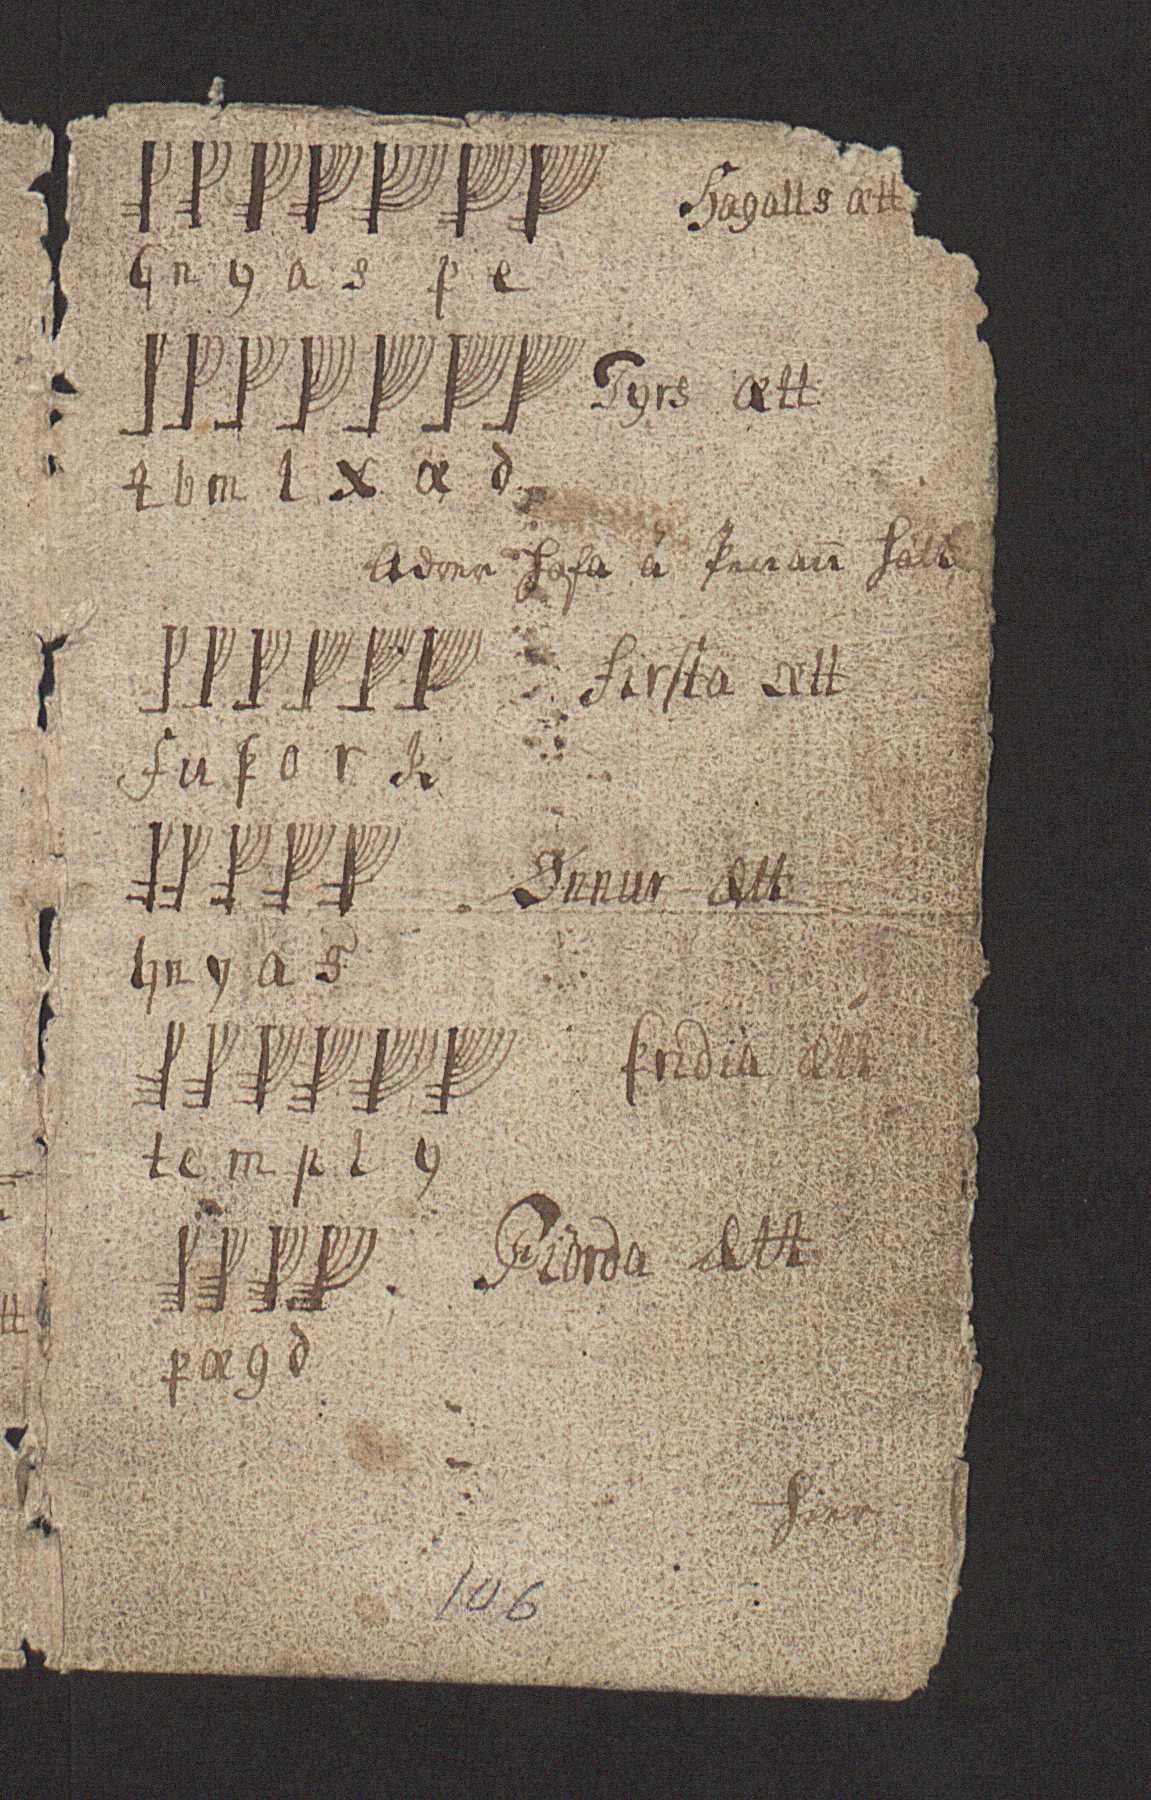 Hagalls ætt
h n y a s p e
Tyrs ætt
t b m l x æ d
Adrer hafa á þenann hátt
firsta ætt
f u þ o r k
Ønnur ætt
h n y a s
þridia ætt
t e m p l y
Fiórda ætt
p æ g d
hier
106